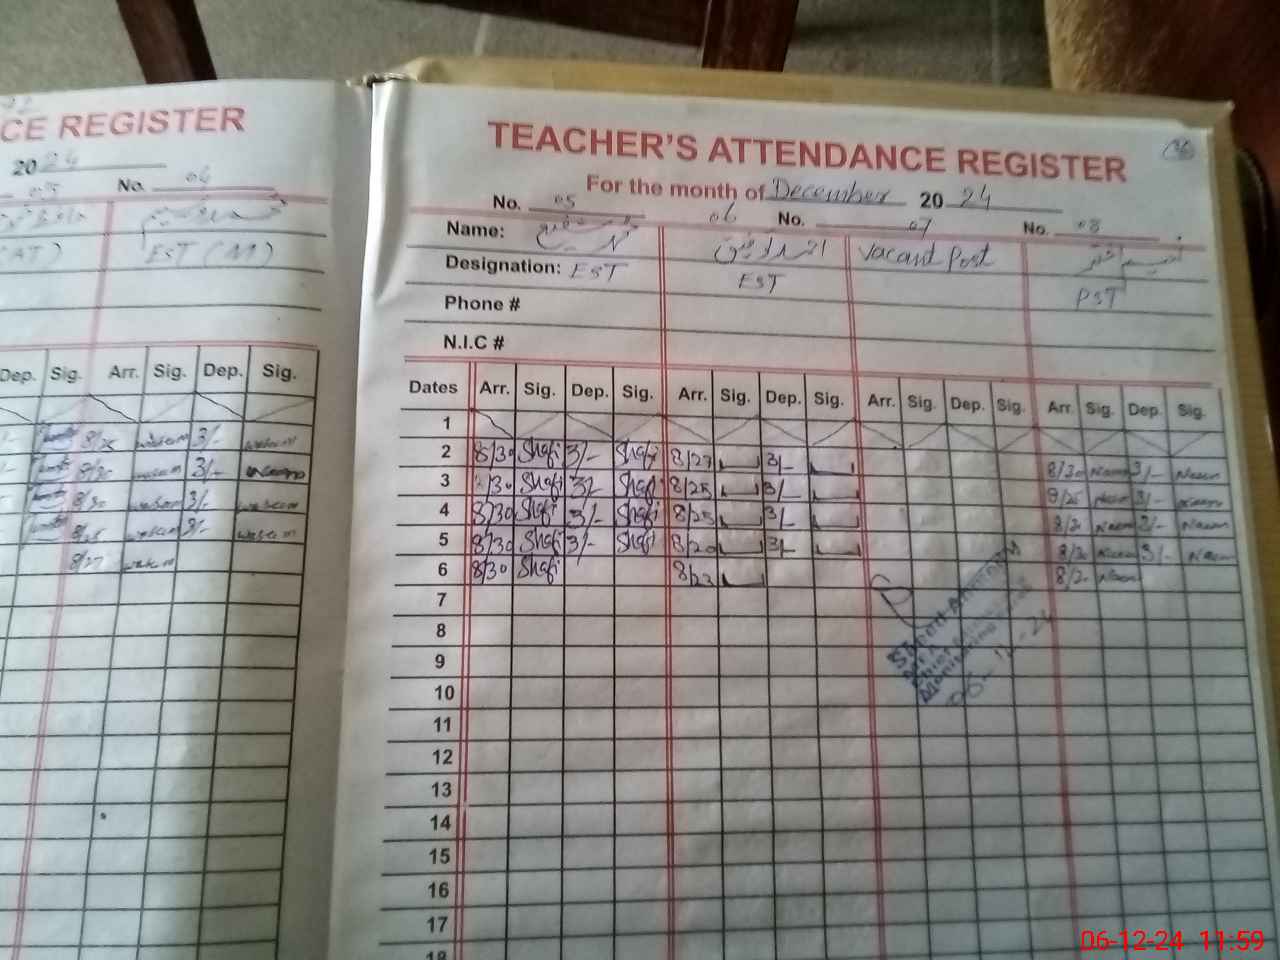 CE REGISTER
20 24
No. 04
(AT) EST (M)
Dep. Sig. Arr. Sig. Dep. Sig.
8/25 waseem 3/- waseem
8/30 waseem 3/-
8/30 waseem 3/- waseem
8/25 waseem 3/- waseem
8/27 waseem
TEACHER'S ATTENDANCE REGISTER
36
For the month of December 20 24
No. 05 06 No. 07 No. 08
Name: محمد شفیع Vacant Post
Designation: EST EST PST
Phone #
N.I.C #
Dates Arr. Sig. Dep. Sig. Arr. Sig. Dep. Sig. Arr. Sig. Dep. Sig. Arr. Sig. Dep. Sig.
1
2 8/30 Shafi 3/- Shafi 8/27 3/- 8/30 Naeem 3/- Naeem
3 8/30 Shafi 3/- Shafi 8/25 3/- 8/25 Naeem 3/- Naeem
4 8/30 Shafi 3/- Shafi 8/25 3/- Naeem Naeem
5 8/30 Shafi 3/- Shafi 8/20 3/- Naeem 3/- Naeem
6 8/30 Shafi 8/23 Naeem
7
8
9
10
11
12
13
14
15
16
17
18
06-12-24 11:59